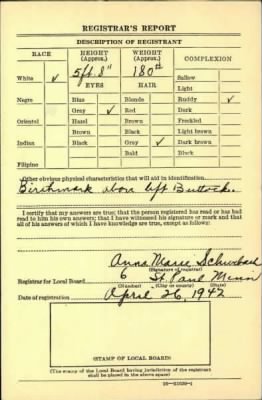 REGISTRAR'S REPORT
DESCRIPTION OF REGISTRANT
RACE HEIGHT (Approx.) WEIGHT (Approx.) COMPLEXION
5 ft. 8" 180#
White ✓ EYES HAIR Sallow
Light
Negro Blue Blonde Ruddy ✓
Gray ✓ Red Dark
Oriental Hazel Brown Freckled
Brown Black Light brown
Indian Black Gray ✓ Dark brown
Bald Black
Filipino
Other obvious physical characteristics that will aid in identification
Birthmark above left Buttock.
I certify that my answers are true; that the person registered has read or has had read to him his own answers; that I have witnessed his signature or mark and that all of his answers of which I have knowledge are true, except as follows:
Anna Marie
(Signature of registrar)
Registrar for Local Board 6 St. Paul Minn
(Number) (City or county) (State)
Date of registration April 26, 1942
(STAMP OF LOCAL BOARD)
(The stamp of the Local Board having jurisdiction of the registrant
shall be placed in the above space)